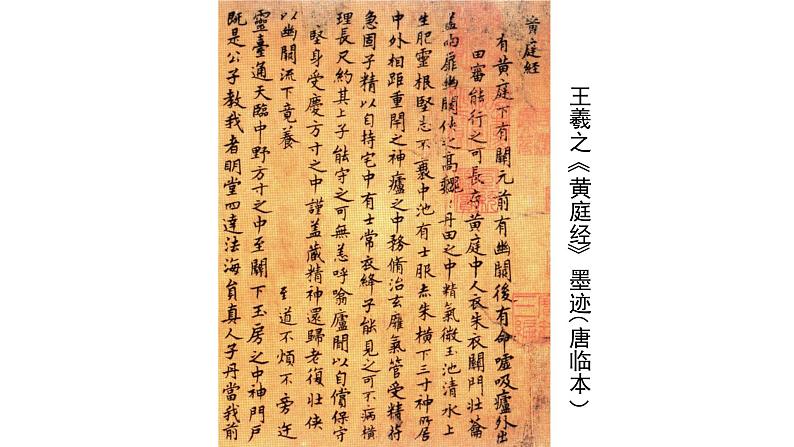 黄庭经
有黄庭下有關元前有幽關後有命噓吸廬外出
田審能行之可長存黄庭中人衣朱衣關門壮籥
盖兩扉幽關俠之髙巍巍丹田之中精氣微玉池清水上
生肥靈根堅志不衰中池有士服赤朱横下三寸神所居
中外相距重閇之神廬之中務脩治玄廱氣管受精符
急固子精以自持宅中有士常衣絳子能見之可不病横
理長尺約其上子能守之可無恙呼噏廬間以自償保守
堅身受慶方寸之中謹盖藏精神還歸老復壮俠
以幽關流下竟養 至道不煩不旁迕
靈臺通天臨中野方寸之中至關下玉房之中神門户
既是公子教我者明堂四達法海員真人子丹當我前
王羲之《黄庭经》墨迹(唐临本)